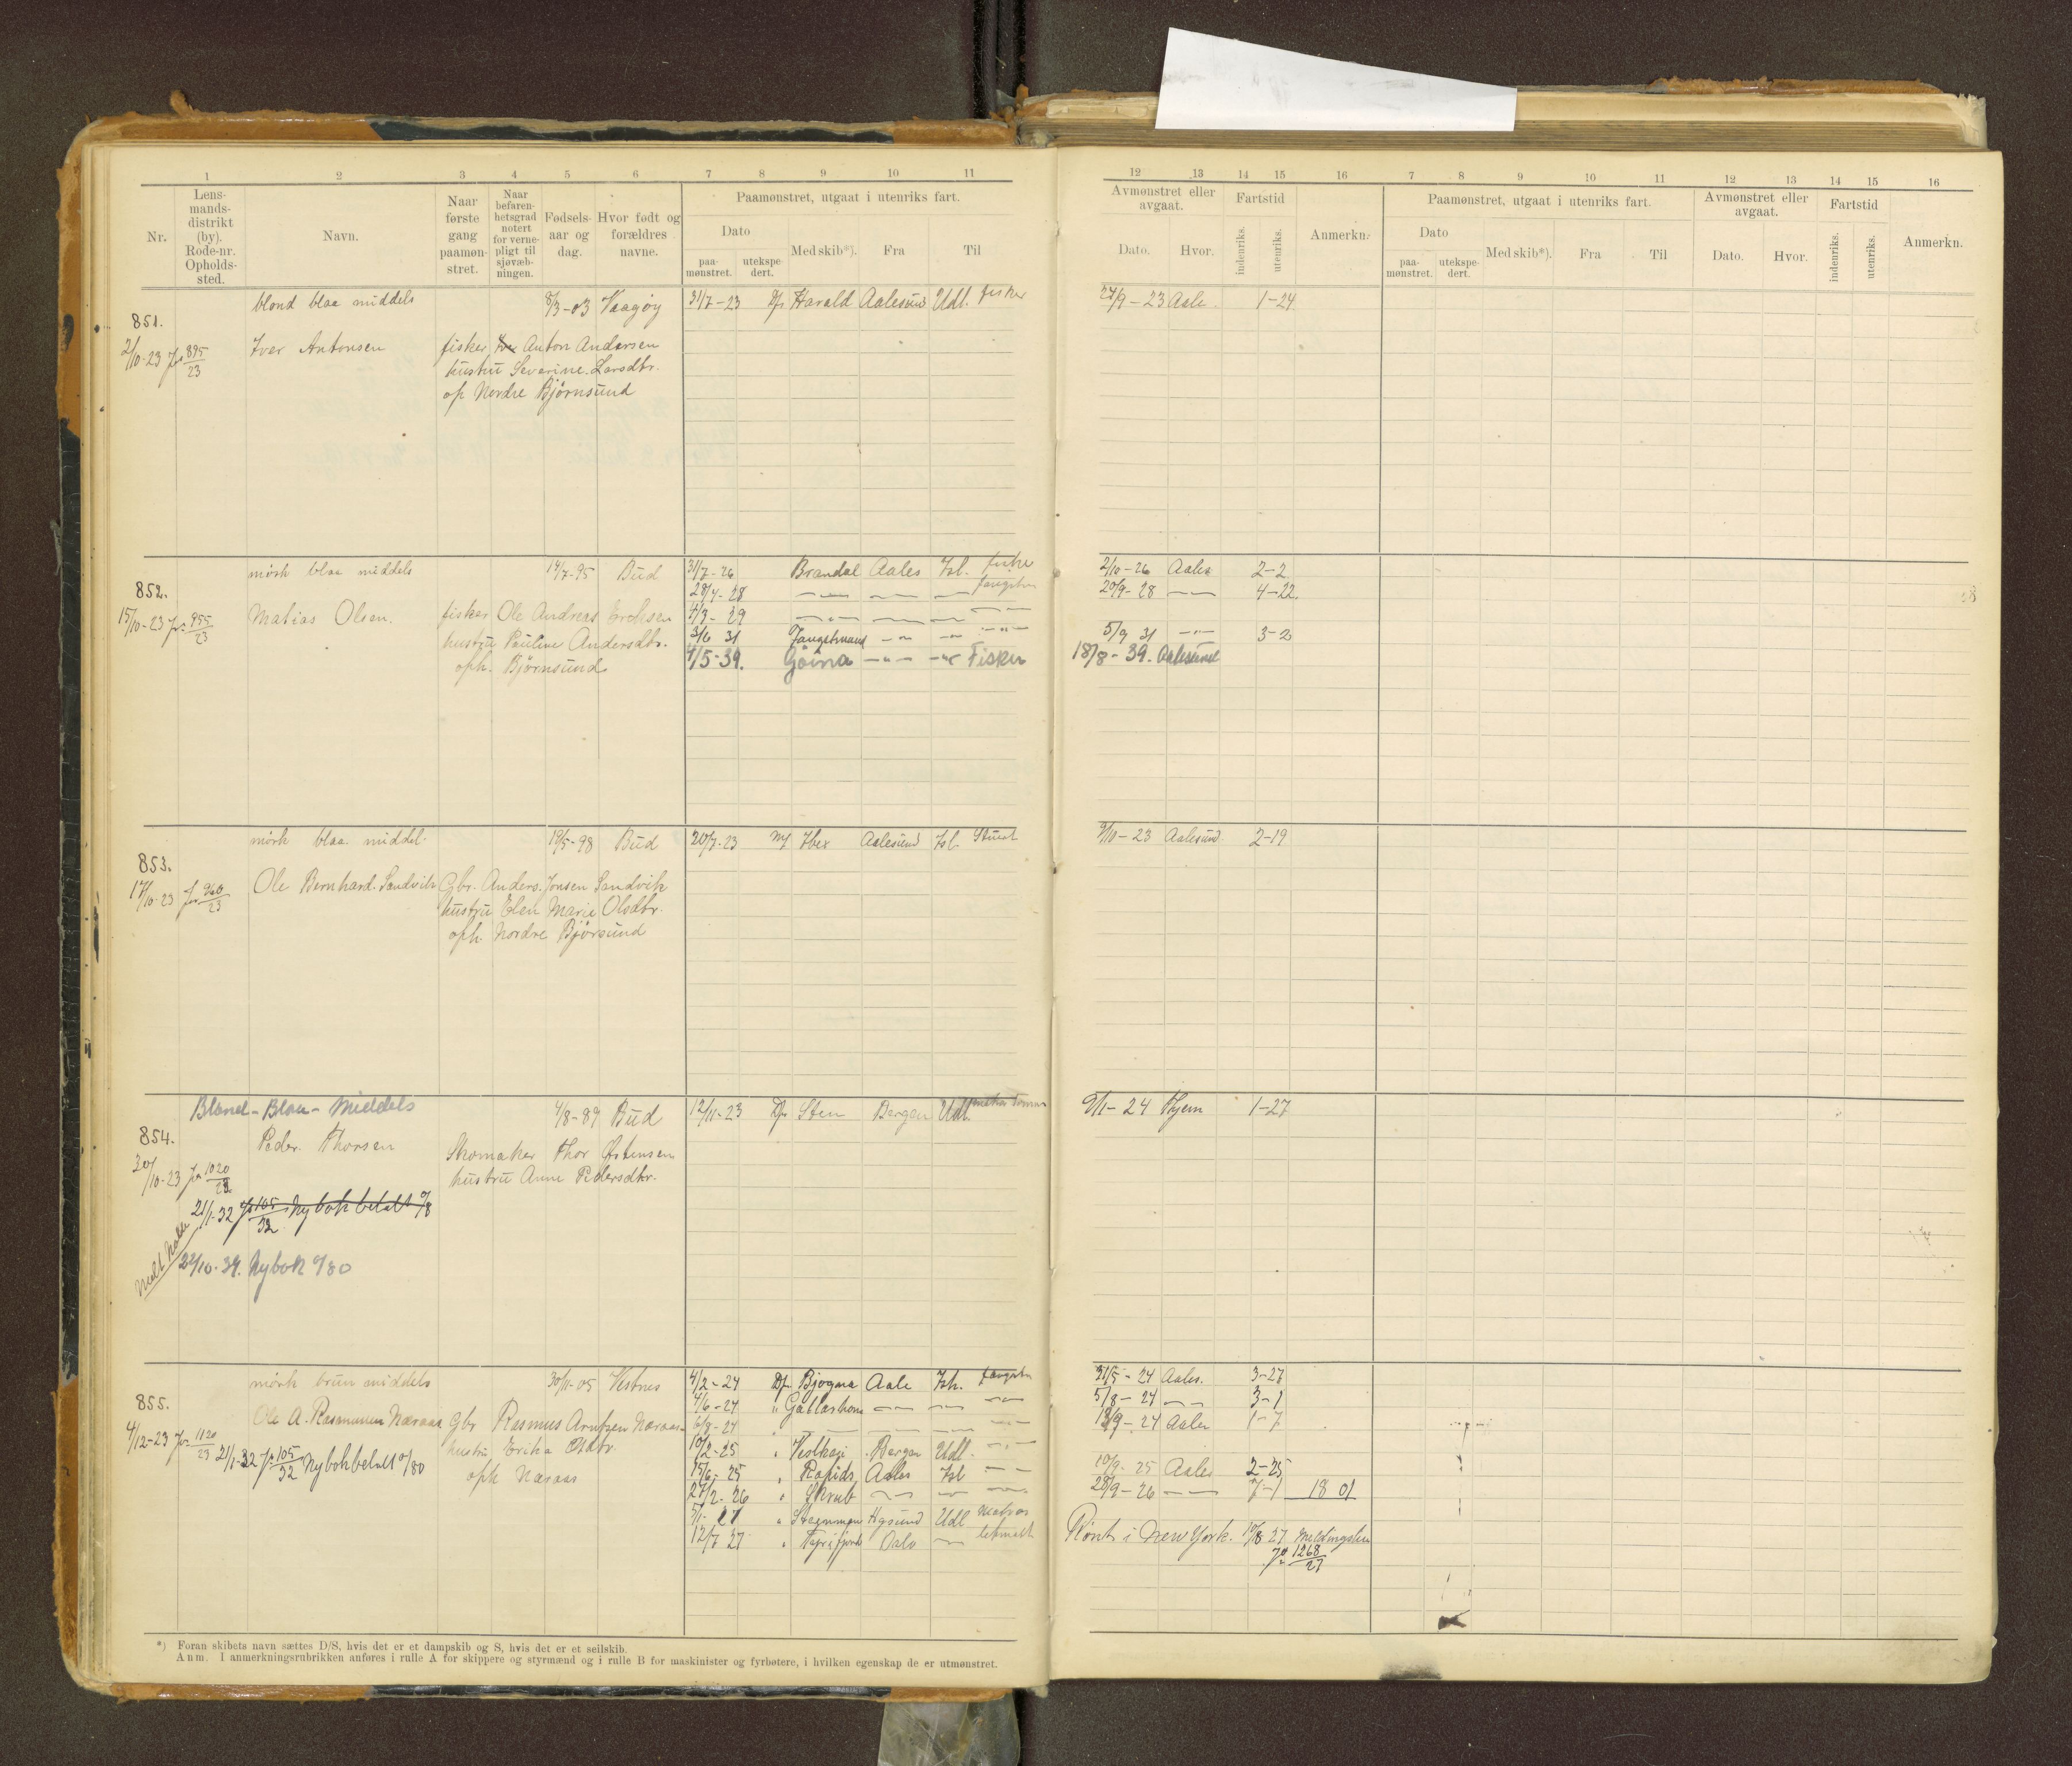 1 2 3 4 5 6 7 8 9 10 11
Nr.
Lensmandsdistrikt (by). Rode-nr. Opholdssted.
Navn.
Naar første gang paamønstret.
Naar befarenhetsgrad notert for vernepligt til sjøvæbningen.
Fødselsaar og dag.
Hvor født og forældres navne.
Paamønstret, utgaat i utenriks fart.
Dato
paamønstret. utekspedert.
Med skib*). Fra Til
12 13 14 15 16 7 8 9 10 11 12 13 14 15 16
Avmønstret eller avgaat.
Dato. Hvor.
Fartstid
indenriks. utenriks.
Anmerkn.
Paamønstret, utgaat i utenriks fart.
Dato
paamønstret. utekspedert.
Med skib*). Fra Til
Avmønstret eller avgaat.
Dato. Hvor.
Fartstid
indenriks. utenriks.
Anmerkn.
blond blaa middels 8/3-03 Vaagøy 31/7-23 D/s Harald Aalesund Udl. fisker 24/9-23 Aale. 1-24
851.
2/10-23 Jr 895/23 Iver Antonsen fisker Anton Andersen
hustru Severine Larsdtr.
op Nordre Bjørnsund
mørk blaa middels 14/7-95 Bud 31/7-26 Brandal Aales Isl. fisker 2/10-26 Aales 2-2
852. 28/4-28 fangstm 20/9-28 4-22
15/10-23 Jr 955/23 Matias Olsen. fisker Ole Andreas Erichsen 4/3-29
hustru Pauline Andersdtr. 3/6 31 Fangstmand 5/9 31 3-2
oph. Bjørnsund 4/5-39. Göina Fisker 18/8-39. Aalesund
mørk blaa middel. 19/5-98 Bud 20/7-23 M/ Ibex Aalesund Isl. Stuert 9/10-23 Aalesund 2-19
853.
17/10-23 Jr 960/23 Ole Bernhard Sandvik Gbr. Anders Jonsen Sandvik
hustru Elen Marie Olsdtr.
oph. Nordre Bjørsund
Blond - Blaa - Middels 4/8-89 Bud 12/11-23 D/s Sten Bergen Udl. 9/1-24 Hjem 1-27
854. Peder Thorsen Skomaker Thor Østensen
30/10-23 Jr 1020/23 hustru Anne Pedersdtr.
21/1-32 Jr 105/32 Ny bok betalt
24/10-39. Ny bok 0/80
mørk brun middels 30/11-05 Vestnes 4/2-24 D/s Bjogna Aale Ish. fangstm 31/5-24 Aales. 3-27
855. 4/6-24 Gallarhorn 5/8-24 3-1
Ole A. Rasmussen Næraas Gbr Rasmus Arntzen Næraas 6/8-24 13/9-24 Aales 1-7
4/12-23 Jr 1120/23 hustru Erika Olsdtr. 10/2-25 Bergen Udl.
21/1-32 Jr 105/32 Ny bok betalt 0/80 oph Næraas 15/6-25 Rapids Aales Isl 10/9-25 Aales 2-25
27/2-26 Skrub 28/9-26 7-1 18 01
5/1-27 Hgsund Udl Matros
12/7 27 Tyrifjord Oslo letmatr Rømt i New York. 10/8 27 Meldingsbr
Jr 1268/27
*) Foran skibets navn sættes D/S, hvis det er et dampskib og S, hvis det er et seilskib.
Anm. I anmerkningsrubrikken anføres i rulle A for skippere og styrmænd og i rulle B for maskinister og fyrbøtere, i hvilken egenskap de er utmønstret.